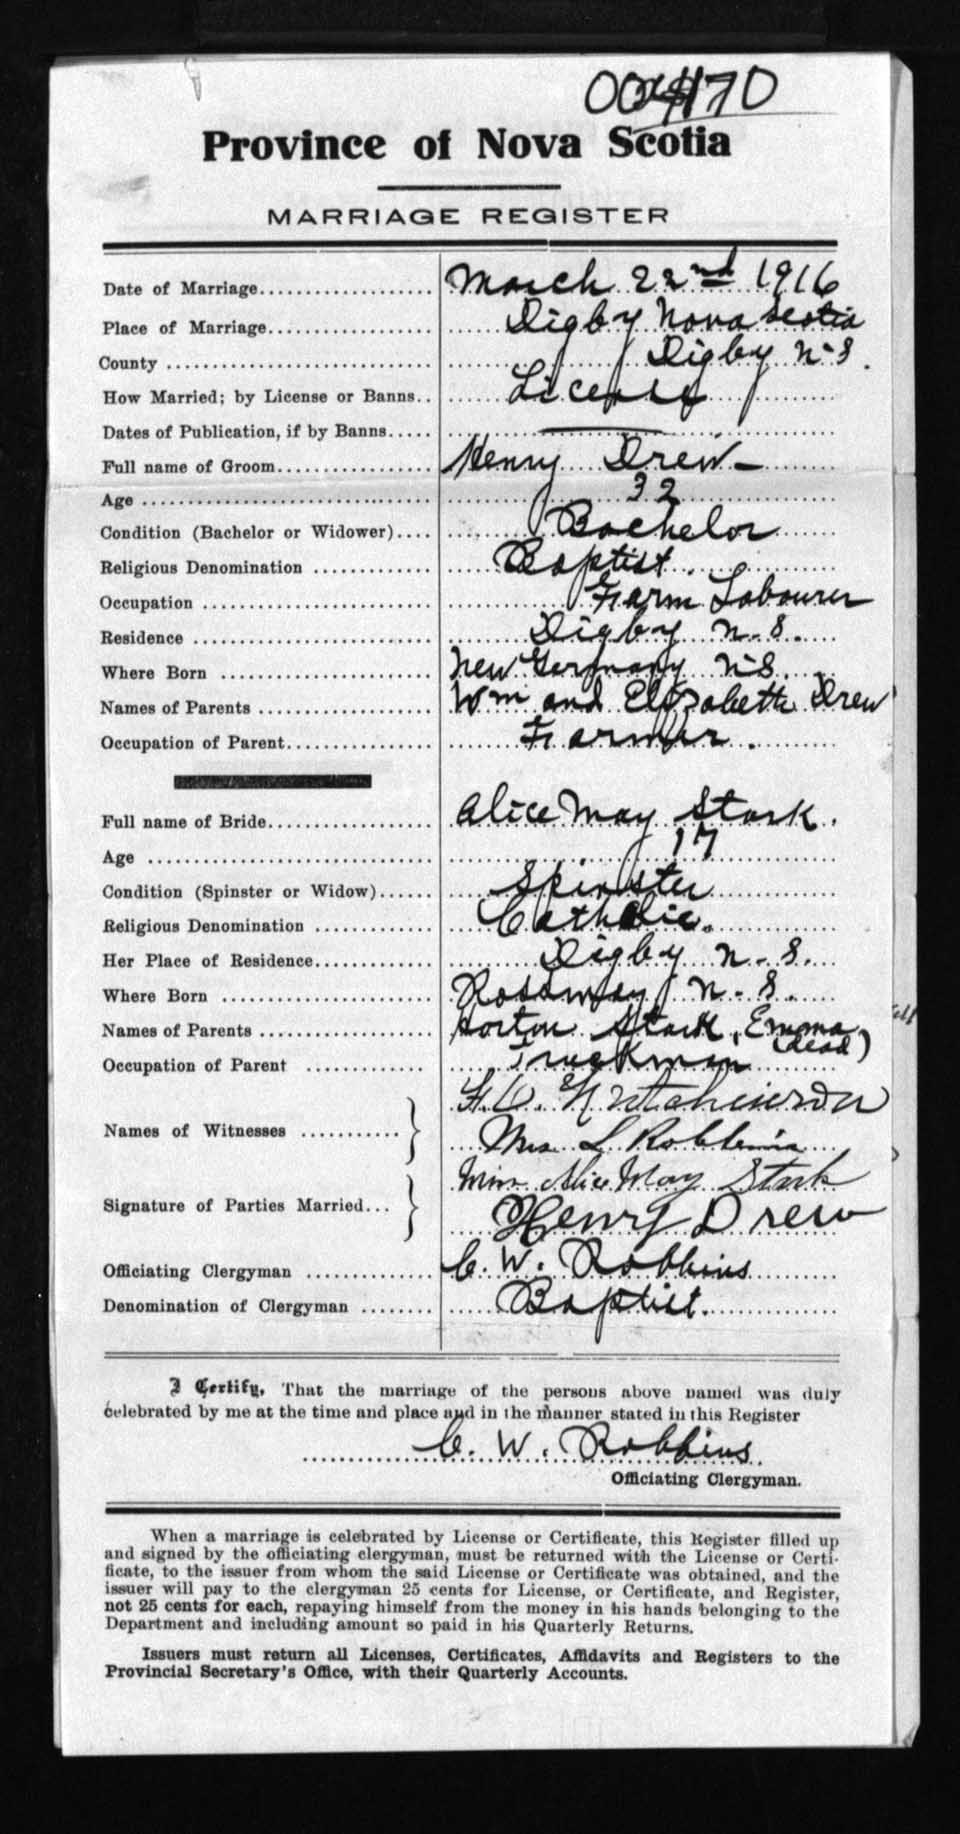 Province of Nova Scotia
MARRIAGE REGISTER
Date of Marriage.................... March 22nd 1916
Place of Marriage................... Digby Nova Scotia
County ............................. Digby N-S.
How Married; by License or Banns.. License
Dates of Publication, if by Banns..... ——
Full name of Groom.................. Henry Drew-
Age ................................ 32
Condition (Bachelor or Widower).... Bachelor
Religious Denomination ............. Baptist.
Occupation ......................... Farm Labourer
Residence .......................... Digby N.S.
Where Born ......................... New Germany N-S.
Names of Parents ................... Wm and Elizabeth Drew
Occupation of Parent................ Farmer.
Full name of Bride.................. Alice May Stark.
Age ................................ 17
Condition (Spinster or Widow)...... Spinster
Religious Denomination ............. Catholic.
Her Place of Residence.............. Digby N.S.
Where Born ......................... Rossway N.S.
Names of Parents ................... Stark, Emma
(dead)
Occupation of Parent ............... Truckman
Names of Witnesses ........... } Hutchinson
Mrs. L Robbins
Signature of Parties Married... } Miss Alice May Stark
Henry Drew
Officiating Clergyman .............. C. W. Robbins
Denomination of Clergyman ........ Baptist.
I Certify, That the marriage of the persons above named was duly
celebrated by me at the time and place and in the manner stated in this Register
C. W. Robbins
Officiating Clergyman.
When a marriage is celebrated by License or Certificate, this Register filled up
and signed by the officiating clergyman, must be returned with the License or Certi-
ficate, to the issuer from whom the said License or Certificate was obtained, and the
issuer will pay to the clergyman 25 cents for License, or Certificate, and Register,
not 25 cents for each, repaying himself from the money in his hands belonging to the
Department and including amount so paid in his Quarterly Returns.
Issuers must return all Licenses, Certificates, Affidavits and Registers to the
Provincial Secretary's Office, with their Quarterly Accounts.